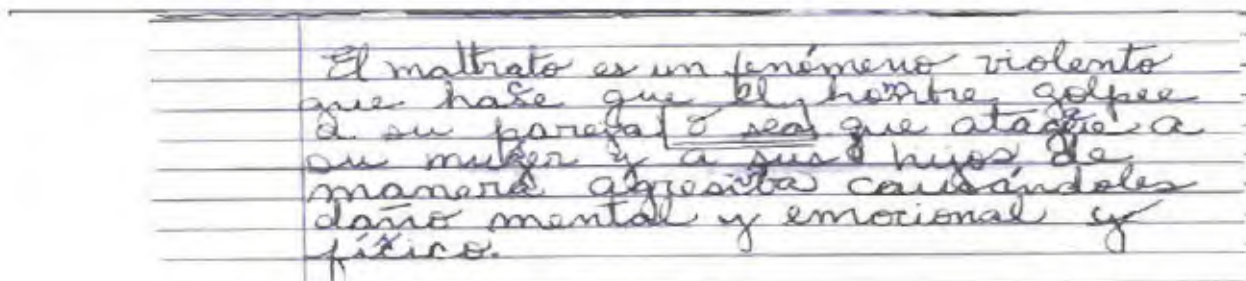 El maltrato es un fenómeno violento
que hase que el hombre golpee
a su pareja ó sea que ataque a
su mujer y a sus hijos de
manera agresiba causándoles
daño mental y emocional y
físico.